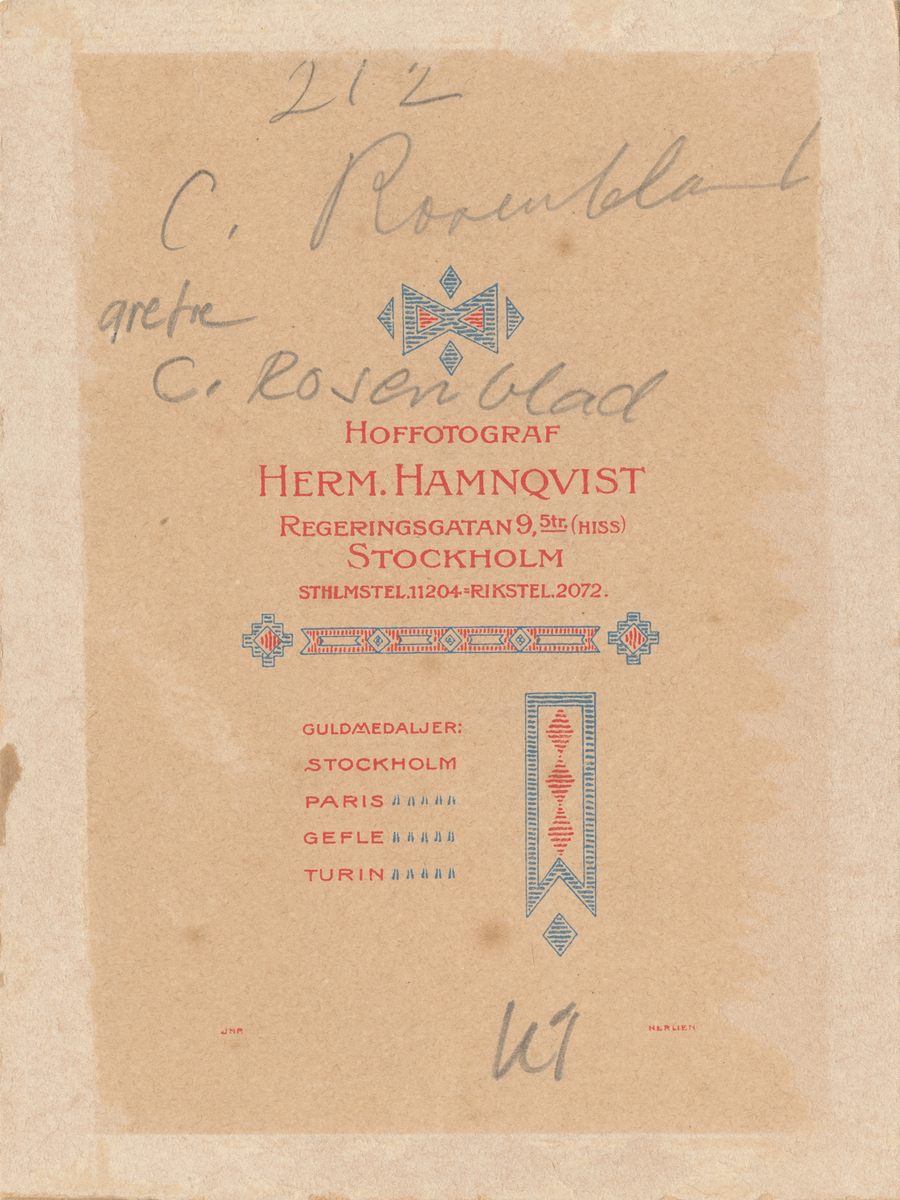 212
C. Rosenblad
grefve
C. Rosenblad
HOFFOTOGRAF
HERM. HAMNQVIST
REGERINGSGATAN 9, 5tr. (HISS)
STOCKHOLM
STHLMSTEL. 11204 = RIKSTEL. 2072.
GULDMEDALJER:
STOCKHOLM
PARIS
GEFLE
TURIN
HERLIEN